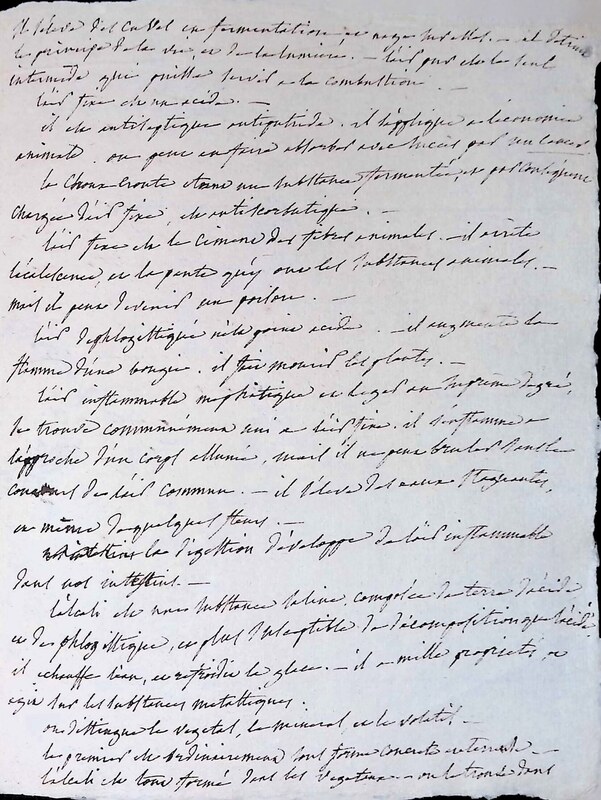 il s'eleve des cuves en fermentation, et nage sur elles. — il détruit
le principe de la vie, et de la lumiere. — l'air pur est le seul
intermede qui puisse servir a la combustion.
l'air fixe est un acide. —
il est antiseptique antiputride. il s'applique a l'économie
animale. on peut en faire absorber avec succès par un cancer
la Choux-Croute étant une substance fermentée, et par conséquent
chargée d'air fixe, est antiscorbutique. —
l'air fixe est le ciment des fibres animales. — il arrête
l'alcalescence, et la pente qu'y ont les substances animales. —
mais il peut devenir un poison. —
l'air dephlogistiqué n'est point acide. — il augmente la
flamme d'une bougie. il fait mourir les plantes. —
l'air inflammable mephitique et leger au supreme degré,
se trouve communément uni a l'air fixe. il s'enflamme a
l'approche d'un corps allumé, mais il ne peut bruler sans le
concours de l'air commun. — il s'eleve des eaux stagnantes,
et même de quelques fleurs. —
la digestion développe de l'air inflammable
dans nos intestins. —
l'alcali est une substance saline, composée de terre d'acide
et de phlogistique, et plus susceptible de décomposition que l'acide
il echauffe l'eau, et refroidit la glace. — il a mille propriétés, et
agit sur les substances metalliques.
on distingue le vegetal, le mineral et le volatil. —
le premier est ordinairement sous forme concrete —
l'alcali est tout formé dans les vegetaux. — on le trouve dans